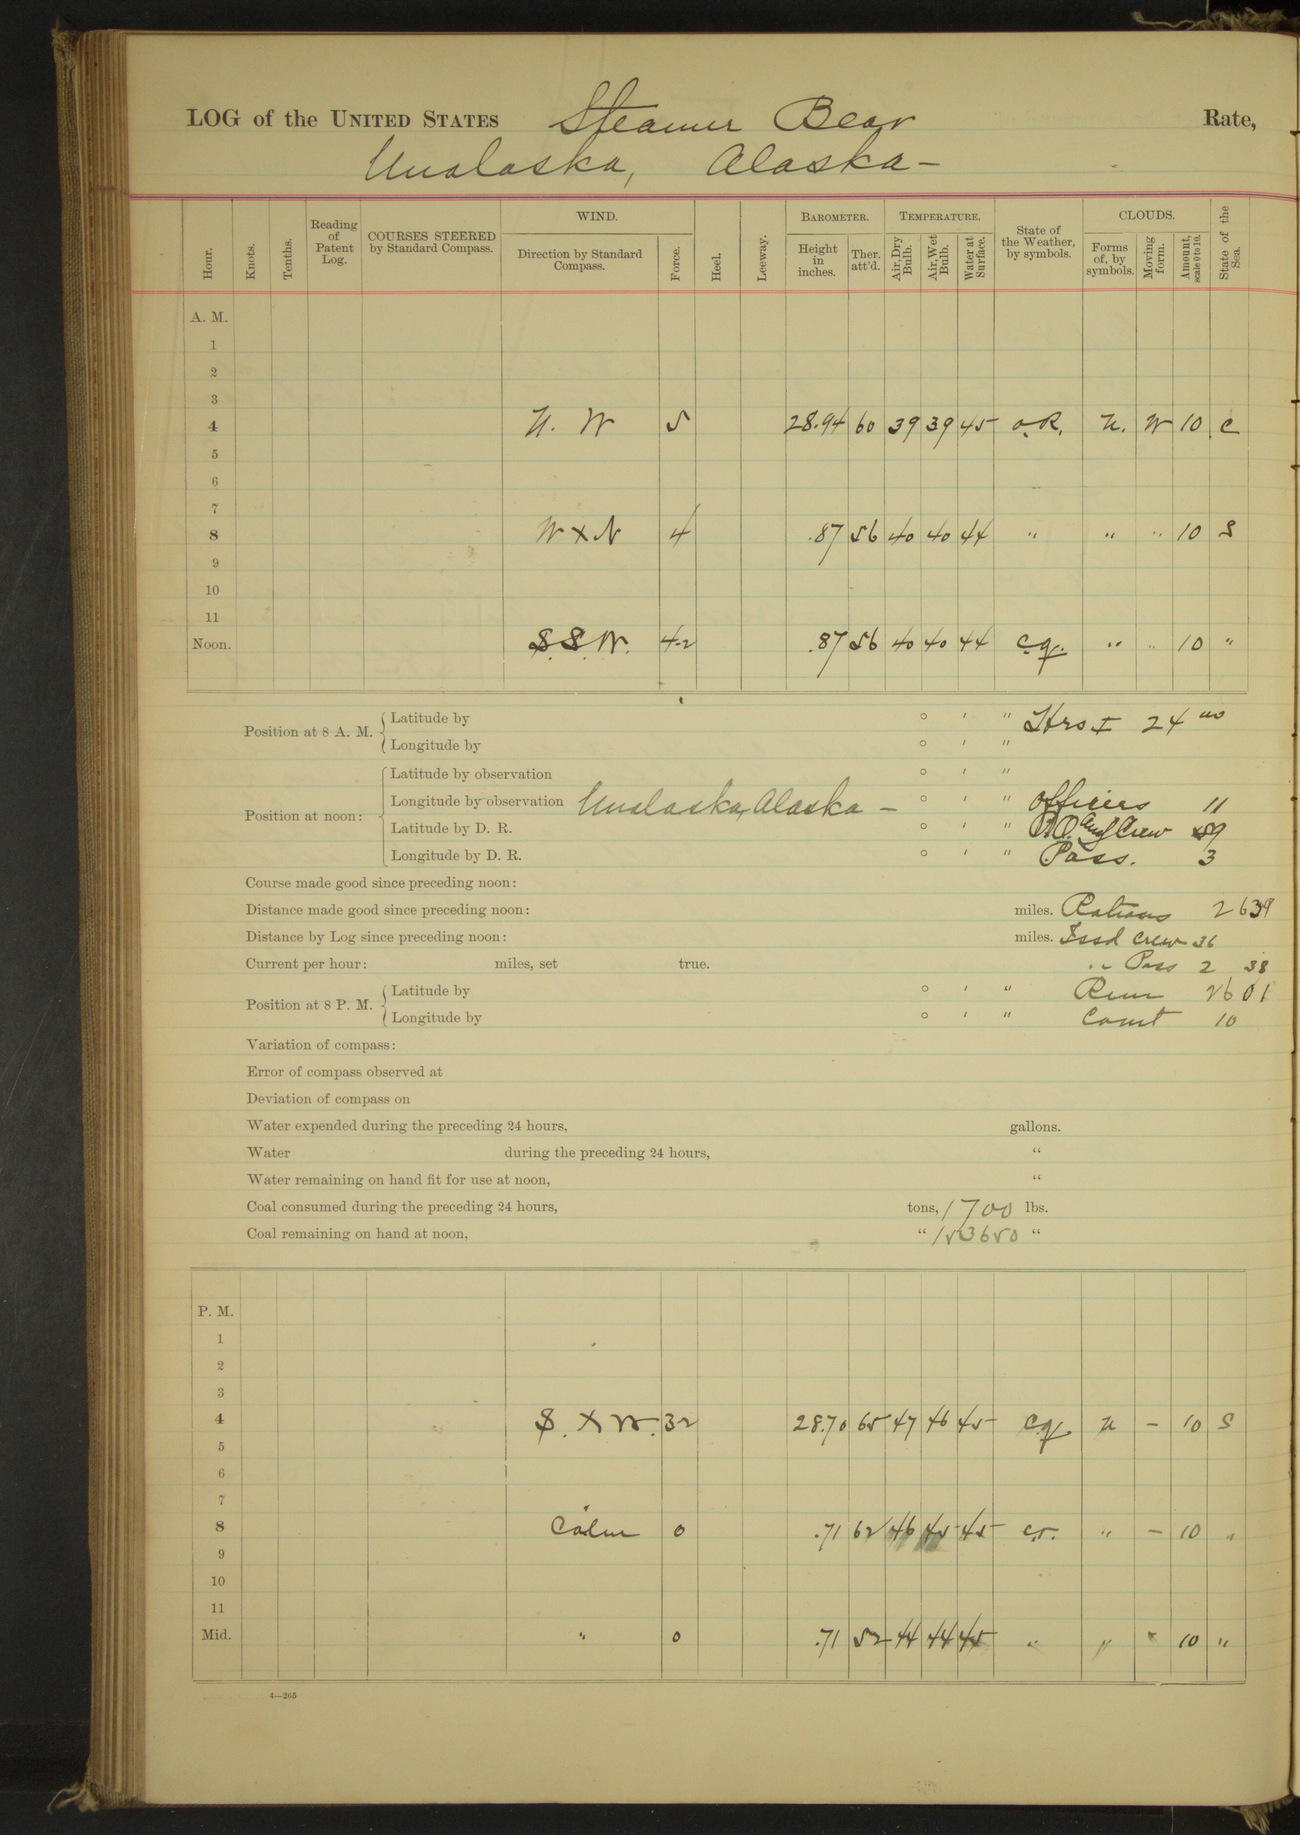 LOG of the UNITED STATES Steamer Bear Rate,
Unalaska, Alaska –
Hour. Knots. Tenths. Reading of Patent Log. COURSES STEERED by Standard Compass. WIND. Direction by Standard Compass. Force. Heel. Leeway. BAROMETER. Height in inches. Ther. att'd. TEMPERATURE. Air, Dry Bulb. Air, Wet Bulb. Water at Surface. State of the Weather, by symbols. CLOUDS. Forms of, by symbols. Moving form. Amount, scale 0 to 10. State of the Sea.
A. M.
1
2
3
4 N. W 5 28.94 60 39 39 45 o.R. N. W 10 C
5
6
7
8 W X N 4 .87 56 40 40 44 " " " 10 S
9
10
11
Noon. S.S.W. 4-2 .87 56 40 40 44 c.q. " " 10 "
Position at 8 A. M. Latitude by ° ′ ″ 24
Longitude by ° ′ ″
Position at noon: Latitude by observation ° ′ ″
Longitude by observation Unalaska, Alaska – ° ′ ″ Officers 11
Latitude by D. R. ° ′ ″ Crew 89
Longitude by D. R. ° ′ ″ Pass. 3
Course made good since preceding noon:
Distance made good since preceding noon: miles. Rations 2639
Distance by Log since preceding noon: miles. Issd Crew 36
Current per hour: miles, set true. " Pass 2 38
Position at 8 P. M. Latitude by ° ′ ″ Rem 2601
Longitude by ° ′ ″ 10
Variation of compass:
Error of compass observed at
Deviation of compass on
Water expended during the preceding 24 hours, gallons.
Water during the preceding 24 hours, "
Water remaining on hand fit for use at noon, "
Coal consumed during the preceding 24 hours, tons, 1700 lbs.
Coal remaining on hand at noon, " 153650 "
P. M.
1
2
3
4 S. X W. 3-2 28.70 65 47 46 45 c.q. N – 10 S
5
6
7
8 Calm 0 .71 62 46 45 45 c.r. " – 10 "
9
10
11
Mid. " 0 .71 52 44 44 45 " " " 10 "
4—265